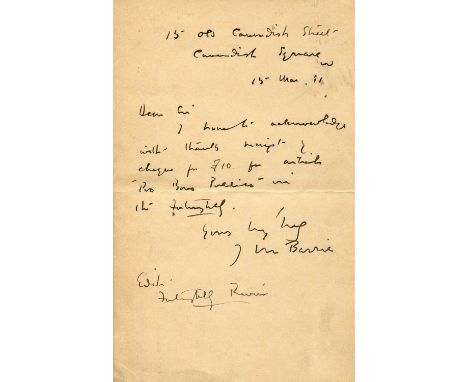 15 Old Cavendish Street
Cavendish Square
W
15 Mar. 91
Dear Sir
I have to acknowledge
with thanks receipt of
cheque for £10 for article
"Pro Bono Publico" in
the Fortnightly.
Yours truly
J M Barrie
Editor
Fortnightly Review